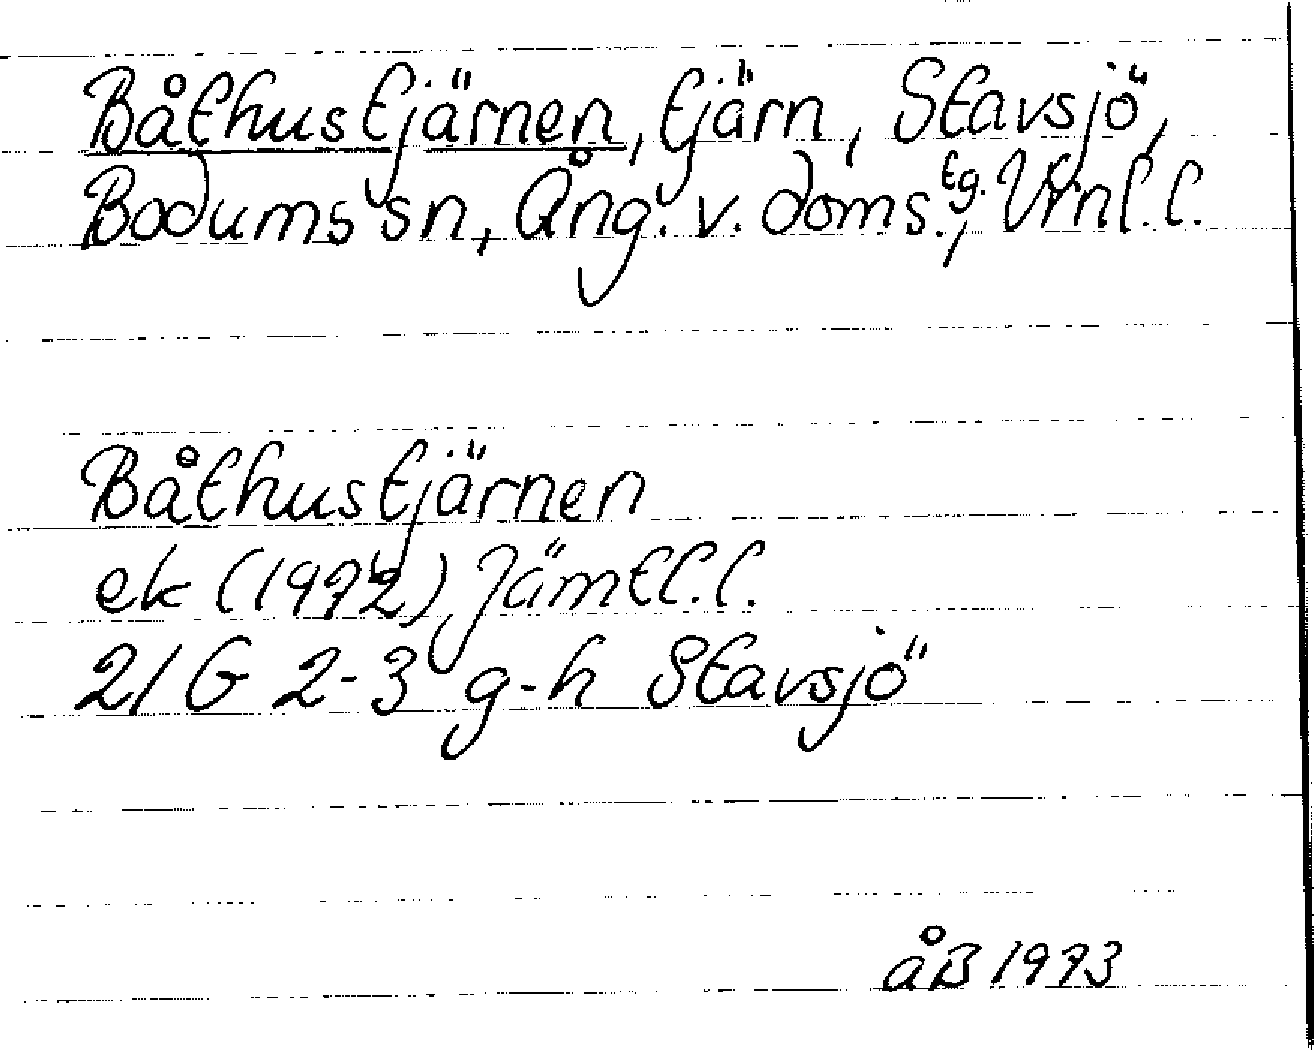 Båthustjärnen, tjärn, Stavsjö,
Bodums sn, Ång. v. doms.tg., Vrnl.l.
Båthustjärnen
ek (1972) Jämtl.l.
21 G 2-3 g-h Stavsjö
åB 1973